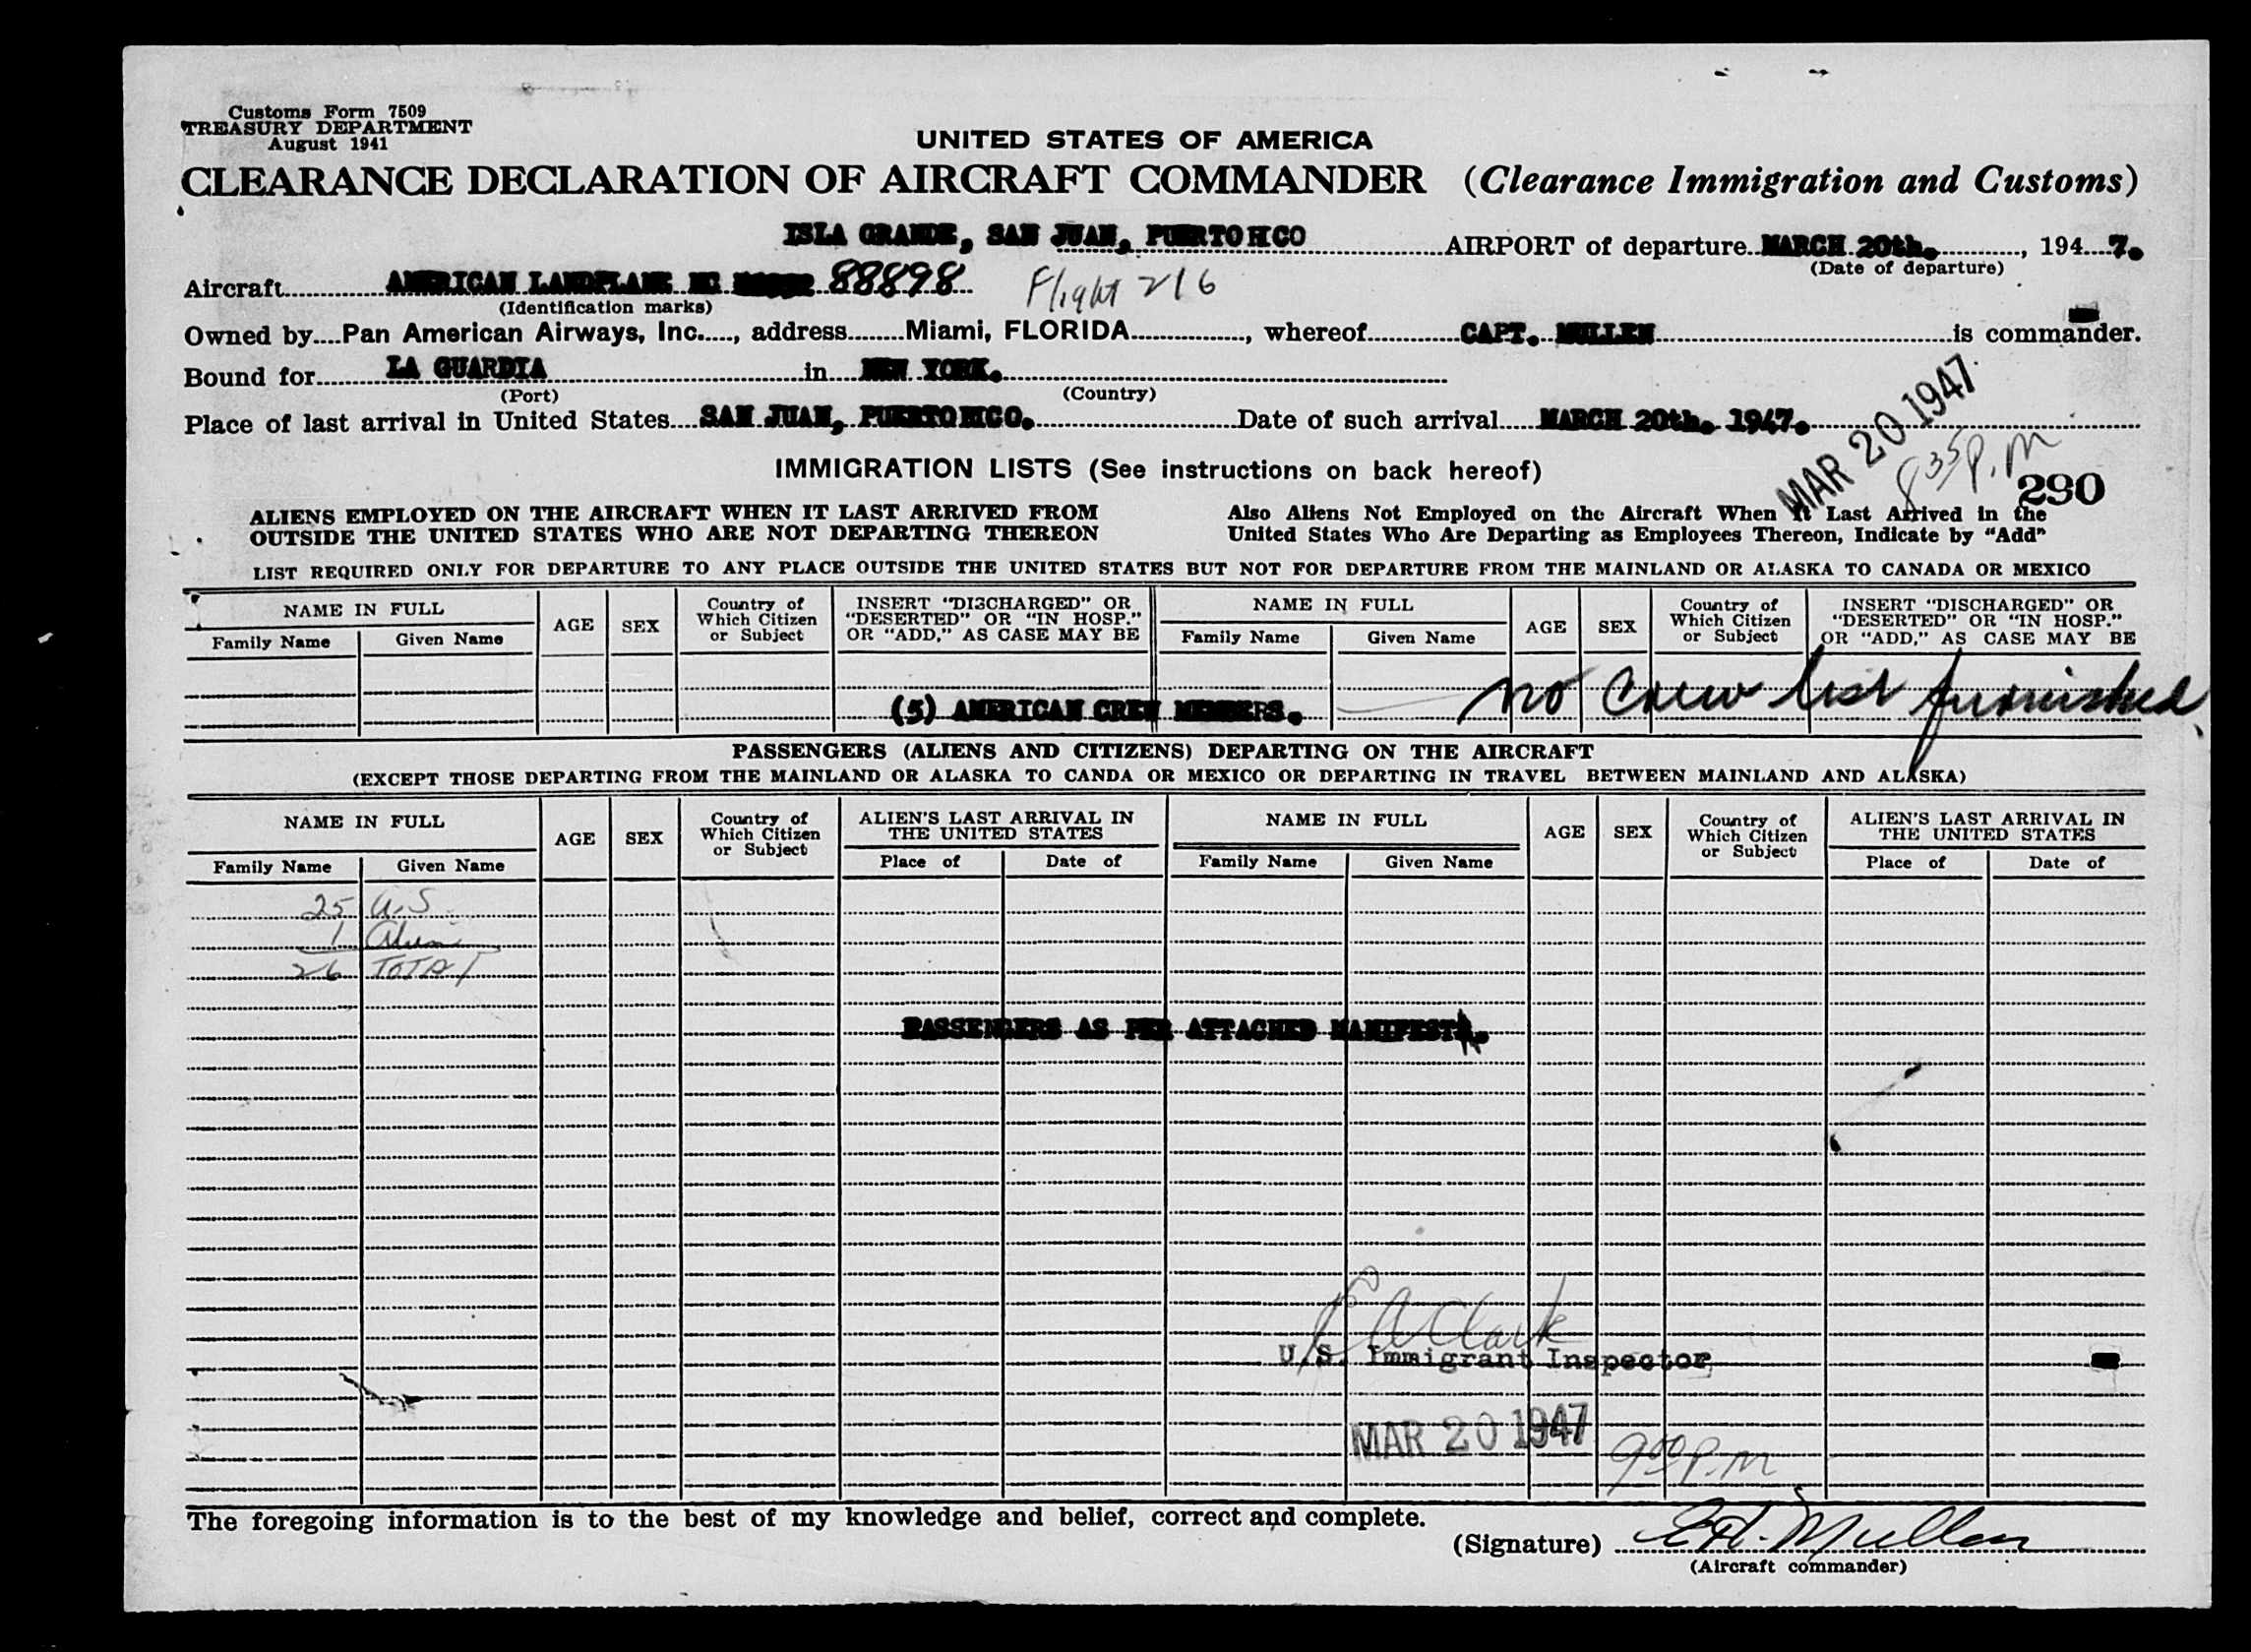 Customs Form 7509
TREASURY DEPARTMENT
August 1941
UNITED STATES OF AMERICA
CLEARANCE DECLARATION OF AIRCRAFT COMMANDER (Clearance Immigration and Customs)
ISLA GRANDE, SAN JUAN, PUERTO RICO AIRPORT of departure MARCH 20th., 1947.
(Date of departure)
Aircraft AMERICAN LANDPLANE NC 88898 Flight 216
(Identification marks)
Owned by Pan American Airways, Inc., address Miami, FLORIDA, whereof CAPT. MULLEN is commander.
Bound for LA GUARDIA in NEW YORK.
(Port) (Country)
Place of last arrival in United States SAN JUAN, PUERTO RICO. Date of such arrival MARCH 20th. 1947.
MAR 20 1947
8 35 P.M
IMMIGRATION LISTS (See instructions on back hereof)
290
ALIENS EMPLOYED ON THE AIRCRAFT WHEN IT LAST ARRIVED FROM
OUTSIDE THE UNITED STATES WHO ARE NOT DEPARTING THEREON
Also Aliens Not Employed on the Aircraft When It Last Arrived in the
United States Who Are Departing as Employees Thereon, Indicate by "Add"
LIST REQUIRED ONLY FOR DEPARTURE TO ANY PLACE OUTSIDE THE UNITED STATES BUT NOT FOR DEPARTURE FROM THE MAINLAND OR ALASKA TO CANADA OR MEXICO
NAME IN FULL
Family Name Given Name
AGE
SEX
Country of
Which Citizen
or Subject
INSERT "DISCHARGED" OR
"DESERTED" OR "IN HOSP."
OR "ADD," AS CASE MAY BE
NAME IN FULL
Family Name Given Name
AGE
SEX
Country of
Which Citizen
or Subject
INSERT "DISCHARGED" OR
"DESERTED" OR "IN HOSP."
OR "ADD," AS CASE MAY BE
(5) AMERICAN CREW MEMBERS. no Crew list furnished
PASSENGERS (ALIENS AND CITIZENS) DEPARTING ON THE AIRCRAFT
(EXCEPT THOSE DEPARTING FROM THE MAINLAND OR ALASKA TO CANDA OR MEXICO OR DEPARTING IN TRAVEL BETWEEN MAINLAND AND ALASKA)
NAME IN FULL
Family Name Given Name
AGE
SEX
Country of
Which Citizen
or Subject
ALIEN'S LAST ARRIVAL IN
THE UNITED STATES
Place of Date of
NAME IN FULL
Family Name Given Name
AGE
SEX
Country of
Which Citizen
or Subject
ALIEN'S LAST ARRIVAL IN
THE UNITED STATES
Place of Date of
25 U.S
1 Alien
26 TOTAL
PASSENGERS AS PER ATTACHED MANIFEST
A Clark
U.S. Immigrant Inspector
MAR 20 1947
9 00 P.M
The foregoing information is to the best of my knowledge and belief, correct and complete.
(Signature) E.H. Mullen
(Aircraft commander)